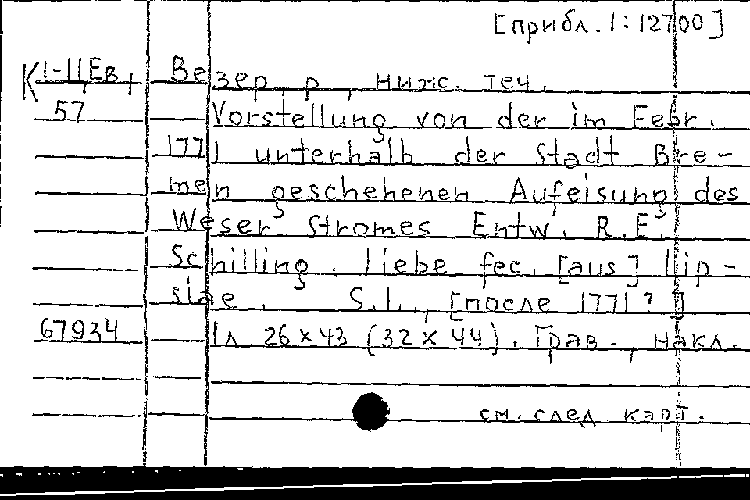 [прибл. 1:12700]
К 1-11Ев, т Везер, р., нижс. теч.
57 Vorstellung von der im Eebr.
1771 unterhalb der Stadt Bre-
men geschehenen Aufeisung des
Weser Stromes Entw. R.E.
Schilling. liebe fec. [aus] Lip-
siae. S.l., [после 1771?]
67934 1л 26x43 (32x44). Грав., накл.
см. след карт.